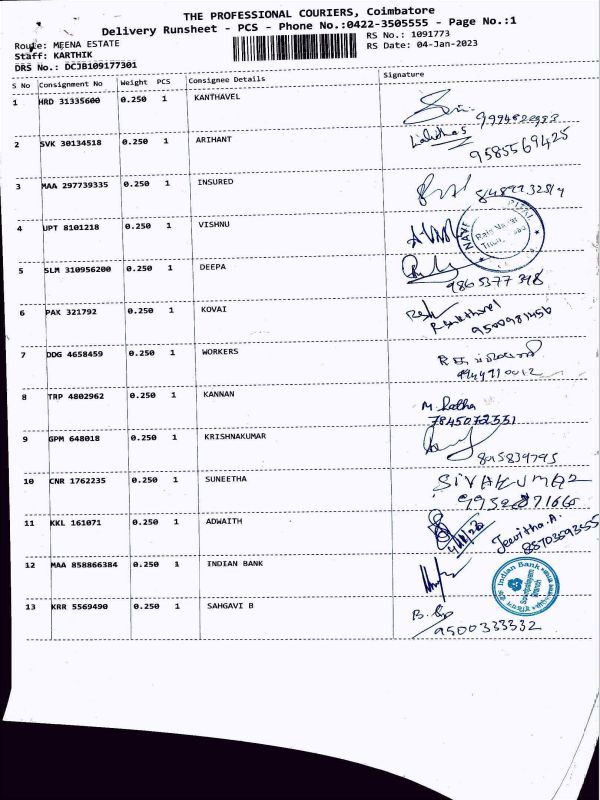 THE PROFESSIONAL COURIERS, Coimbatore
Delivery Runsheet - PCS - Phone No.:0422-3505555 - Page No.:1
Route: MEENA ESTATE
RS No.: 1091773
Staff: KARTHIK
RS Date: 04-Jan-2023
DRS No.: DCJB109177301
S No Consignment No Weight PCS Consignee Details Signature
1 HRD 31335600 0.250 1 KANTHAVEL
2 SVK 30134518 0.250 1 ARIHANT
9585569425
3 MAA 297739335 0.250 1 INSURED
4 UPT 8101218 0.250 1 VISHNU
5 SLM 310956200 0.250 1 DEEPA
9865377398
6 PAK 321792 0.250 1 KOVAI
9500981456
7 DDG 4658459 0.250 1 WORKERS
9944710012
8 TRP 4802962 0.250 1 KANNAN
M. Radha
7845072331
9 GPM 648018 0.250 1 KRISHNAKUMAR
8015839795
10 CNR 1762235 0.250 1 SUNEETHA SIVAKUMAR
11 KKL 161071 0.250 1 ADWAITH
4/1/23 Jeevitha.A.
12 MAA 858866384 0.250 1 INDIAN BANK
Indian Bank
Branch
13 KRR 5569490 0.250 1 SAHGAVI B
9500333332